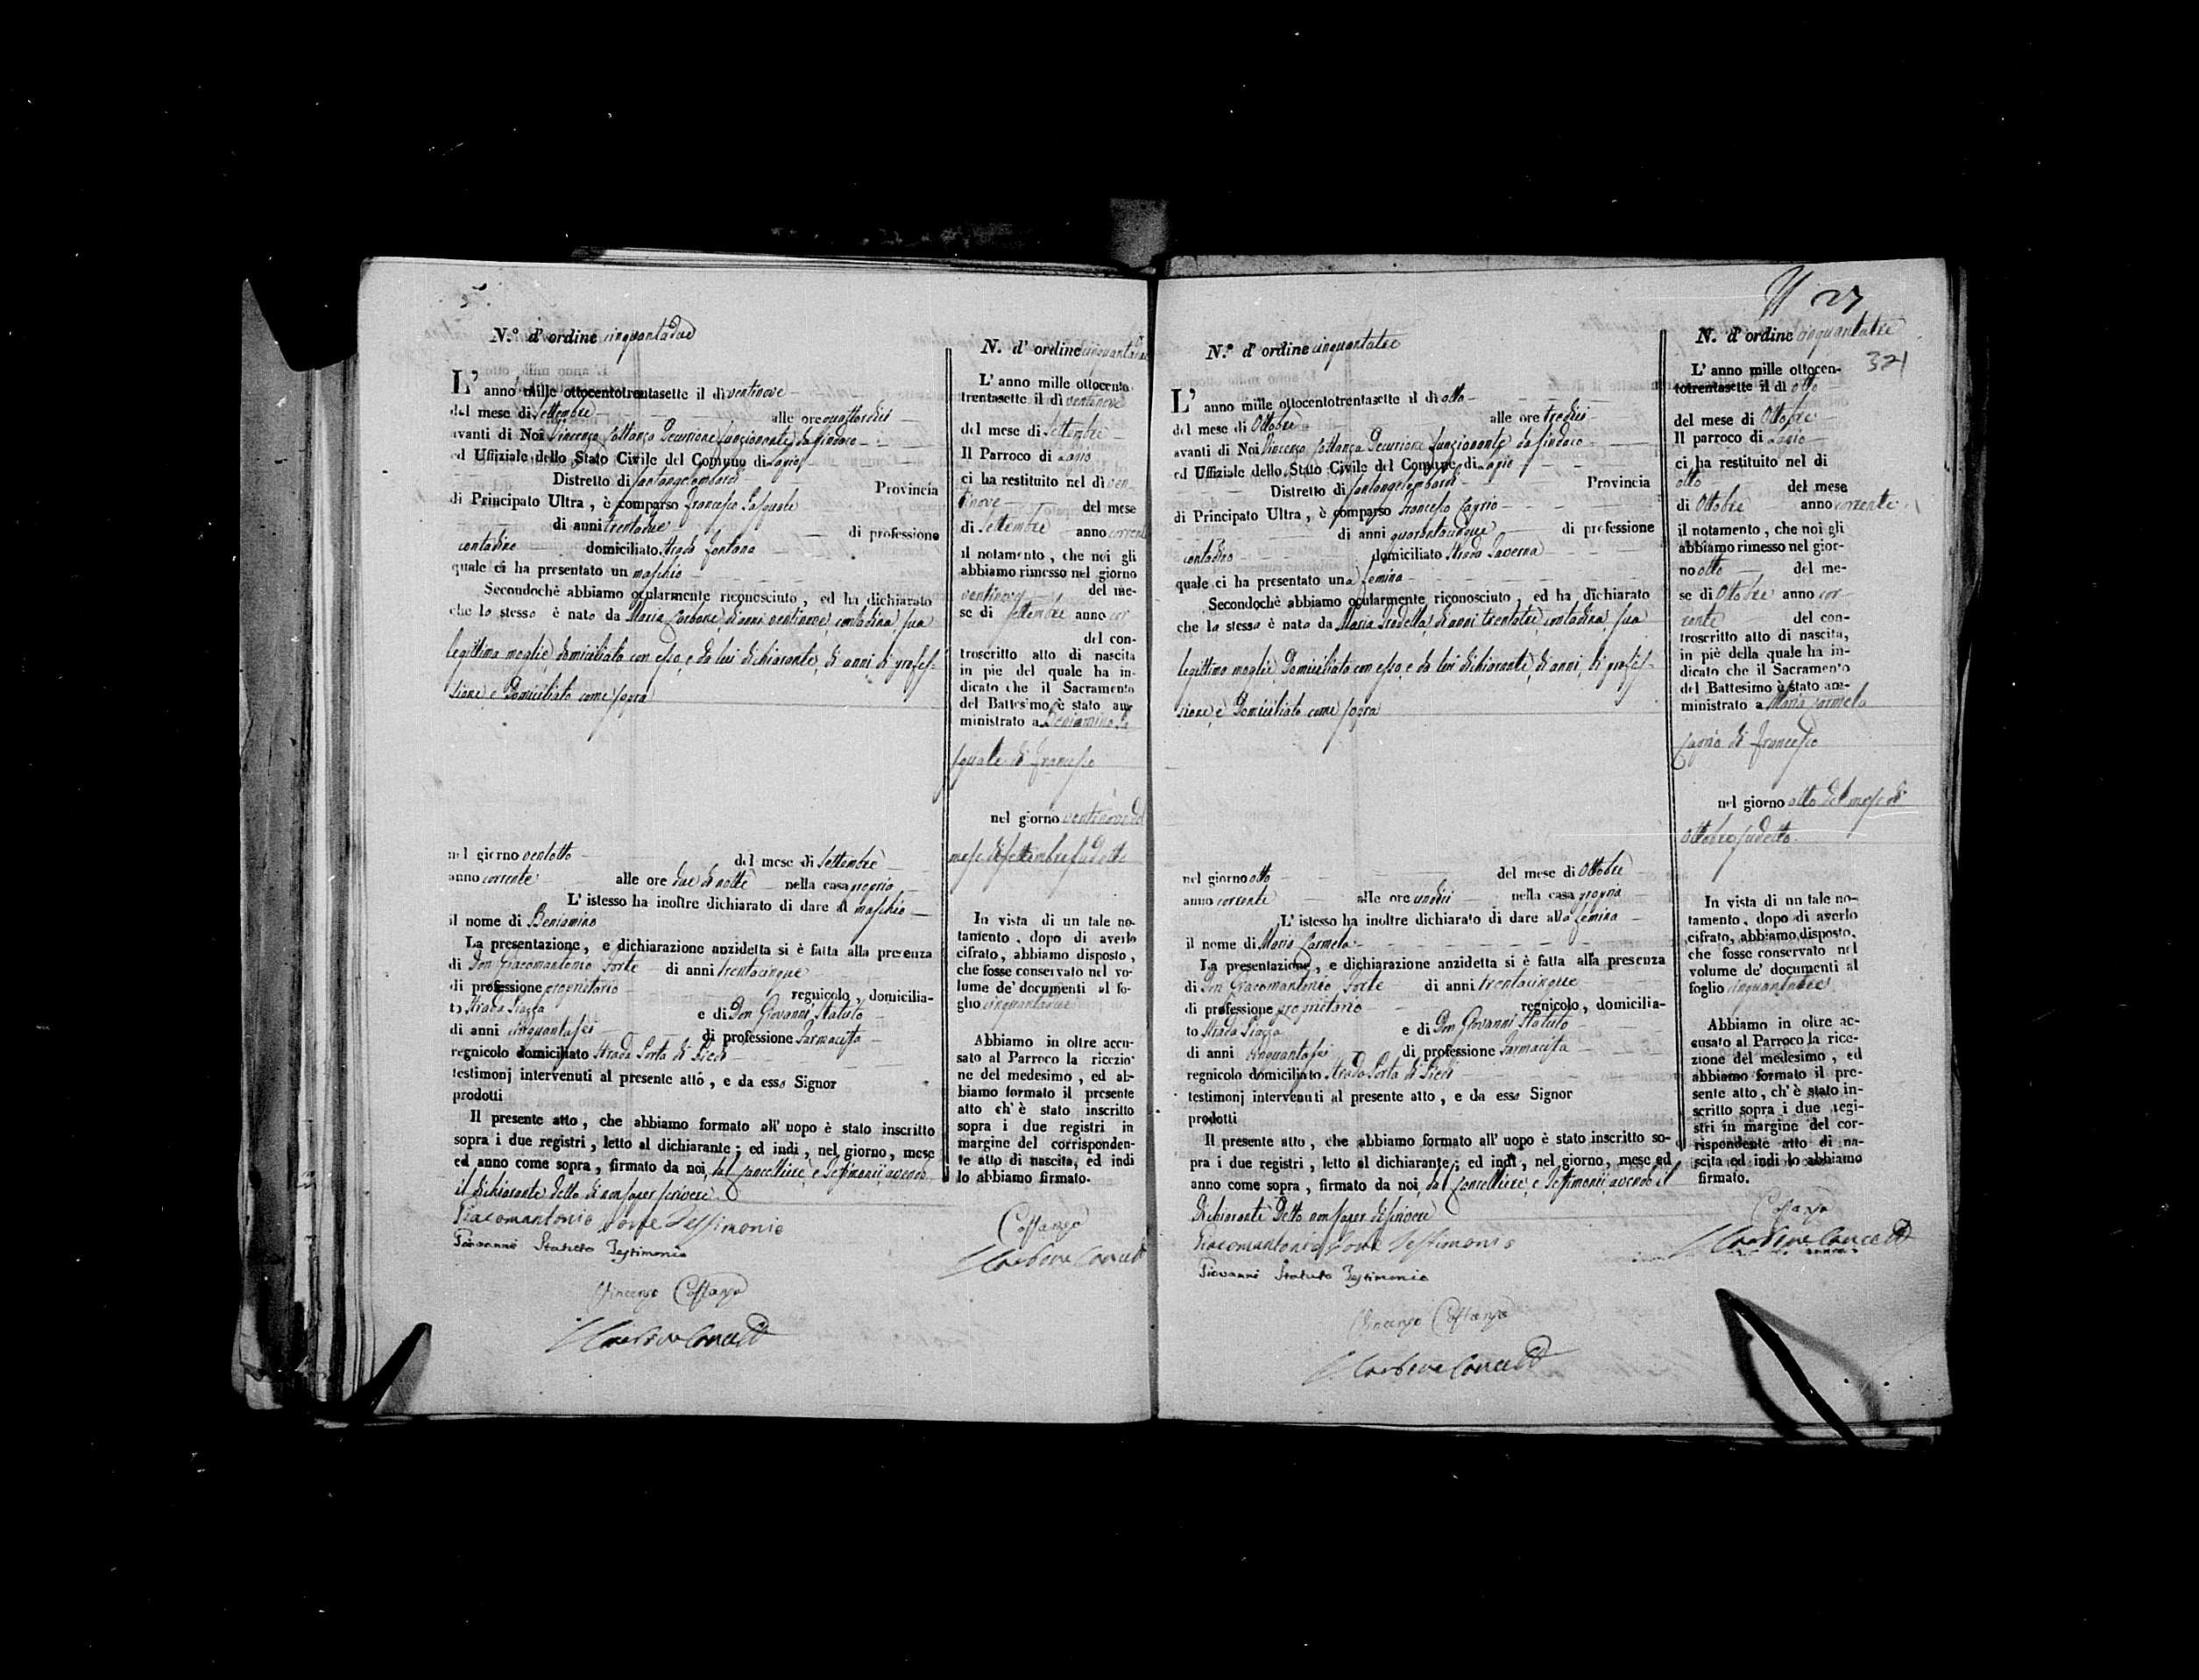 N.º d'ordine cinquantadue
L' anno mille ottocentotrentasette il dì ventinove
del mese di Settembre alle ore quattordici
avanti di Noi Vincenzo Costanza Decurione funzionante da Sindaco
ed Uffiziale dello Stato Civile del Comune di Lagio
Distretto di Santangelombardi Provincia
di Principato Ultra, è comparso Francesco Pasquale
di anni trentadue di professione
contadino domiciliato Strada Fontana
quale ci ha presentato un maschio
Secondochè abbiamo ocularmente riconosciuto, ed ha dichiarato
che lo stesso è nato da Maria Carbone, di anni ventinove, contadina, sua
legittima moglie domiciliata con esso, e da lui dichiarante, di anni, di profes-
sione, e Domiciliato come sopra
nel giorno ventotto del mese di Settembre
anno corrente alle ore due di notte nella casa propria
L' istesso ha inoltre dichiarato di dare al maschio
il nome di Beniamino
La presentazione, e dichiarazione anzidetta si è fatta alla presenza
di Don Giacomantonio Forte di anni trentacinque
di professione proprietario regnicolo, domicilia-
to Strada Piazza e di Don Giovanni Statuto
di anni cinquantasei di professione Farmacista
regnicolo domiciliato Strada Porta di Piedi
testimonj intervenuti al presente atto, e da esso Signor
prodotti
Il presente atto, che abbiamo formato all' uopo è stato inscritto
sopra i due registri, letto al dichiarante; ed indi, nel giorno, mese
ed anno come sopra, firmato da noi, dal Cancelliere, e Testimonii, avendo
il dichiarante detto di non saper scrivere
Giacomantonio Forte Testimonio
Giovanni Statuto Testimonio
Vincenzo Costanza
N. d' ordine cinquantadue
L' anno mille ottocento
trentasette il dì ventinove
del mese di Settembre
Il Parroco di Lagio
ci ha restituito nel dì ven-
tinove del mese
di Settembre anno corrente
il notamento, che noi gli
abbiamo rimesso nel giorno
ventinove del me-
se di Settembre anno cor
del con-
troscritto atto di nascita
in piè del quale ha in-
dicato che il Sacramento
del Battesimo è stato am-
ministrato a Beniamino Pa
squale di Francesco
nel giorno ventinove del
mese di Settembre sudetto
In vista di un tale no-
tamento, dopo di averlo
cifrato, abbiamo disposto,
che fosse conservato nel vo-
lume de' documenti al fo-
glio cinquantadue
Abbiamo in oltre accu-
sato al Parroco la ricezio-
ne del medesimo, ed ab-
biamo formato il presente
atto ch' è stato inscritto
sopra i due registri in
margine del corrisponden-
te atto di nascita, ed indi
lo abbiamo firmato.
Costanza
27
N.º d' ordine cinquantatre
L' anno mille ottocentotrentasette il dì otto
del mese di Ottobre alle ore tredici
avanti di Noi Vincenzo Costanza Decurione funzionante da Sindaco
ed Uffiziale dello Stato Civile del Comune di Lagio
Distretto di Santangelombardi Provincia
di Principato Ultra, è comparso Francesco Caprio
di anni quarantacinque di professione
contadino domiciliato Strada Taverna
quale ci ha presentato una femina
Secondochè abbiamo ocularmente riconosciuto, ed ha dichiarato
che la stessa è nata da Maria di anni trentatre, contadina, sua
legittima moglie, Domiciliata con esso, e da lui dichiarante, di anni, di profes-
sione, e Domiciliato come sopra
nel giorno otto del mese di Ottobre
anno corrente alle ore undici nella casa propria
L' istesso ha inoltre dichiarato di dare alla femina
il nome di Maria Carmela
La presentazione, e dichiarazione anzidetta si è fatta alla presenza
di Don Giacomantonio Forte di anni trentacinque
di professione proprietario regnicolo, domicilia-
to Strada Piazza e di Don Giovanni Statuto
di anni cinquantasei di professione Farmacista
regnicolo domiciliato Strada Porta di Piedi
testimonj intervenuti al presente atto, e da esso Signor
prodotti
Il presente atto, che abbiamo formato all' uopo è stato inscritto so-
pra i due registri, letto al dichiarante; ed indi, nel giorno, mese ed
anno come sopra, firmato da noi, dal Cancelliere, e Testimonii, avendo il
Dichiarante Detto non saper di scrivere
Giacomantonio Forte Testimonio
Giovanni Statuto Testimonio
Vincenzo Costanza
N. d' ordine cinquantatre
321
L' anno mille ottocen-
totrentasette il dì otto
del mese di Ottobre
Il parroco di Lagio
ci ha restituito nel di
otto del mese
di Ottobre anno corrente
il notamento, che noi gli
abbiamo rimesso nel gior-
no otto del me-
se di Ottobre anno cor-
rente del con-
troscritto atto di nascita,
in piè della quale ha in-
dicato che il Sacramento
del Battesimo è stato am-
ministrato a Maria Carmela
Caprio di Francesco
nel giorno otto del mese di
Ottobre sudetto
In vista di un tale no-
tamento, dopo di averlo
cifrato, abbiamo disposto,
che fosse conservato nel
volume de' documenti al
foglio cinquantatre
Abbiamo in oltre ac-
cusato al Parroco la rice-
zione del medesimo, ed
abbiamo formato il pre-
sente atto, ch' è stato in-
scritto sopra i due regi-
stri in margine del cor-
rispondente atto di na-
scita ed indi lo abbiamo
firmato.
Costanza